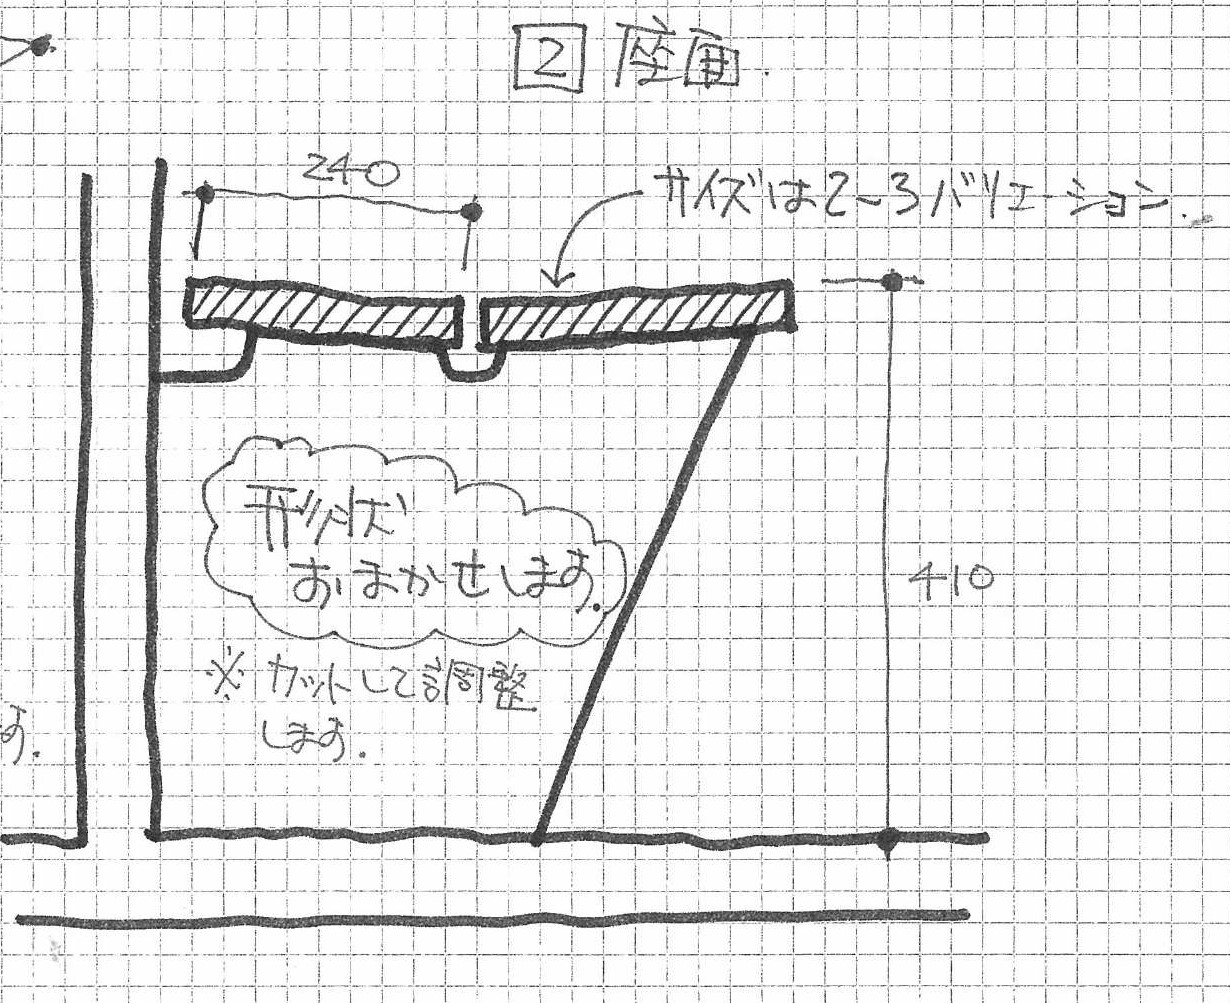 2 座面.
240
サイズは2~3バリエーション.
形状は
おまかせします.
※ カットして調整
します.
410
す.